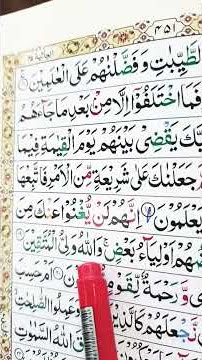 ٤٥١
الطَّيِّبٰتِ وَفَضَّلْنٰهُمْ عَلَى الْعٰلَمِيْنَ
فَمَا اخْتَلَفُوْٓا اِلَّا مِنْۢ بَعْدِ مَا جَآءَهُمُ
رَبَّكَ يَقْضِيْ بَيْنَهُمْ يَوْمَ الْقِيٰمَةِ فِيْمَا
جَعَلْنٰكَ عَلٰى شَرِيْعَةٍ مِّنَ الْاَمْرِ فَاتَّبِعْهَا
يَعْلَمُوْنَ اِنَّهُمْ لَنْ يُّغْنُوْا عَنْكَ مِنَ
بَعْضُهُمْ اَوْلِيَآءُ بَعْضٍ وَاللّٰهُ وَلِيُّ الْمُتَّقِيْنَ
وَّرَحْمَةٌ لِّقَوْمٍ اَمْ حَسِبَ
نَّجْعَلَهُمْ كَالَّذِيْنَ وَعَمِلُوا الصّٰلِحٰتِ
اللّٰهُ السَّمٰوٰتِ